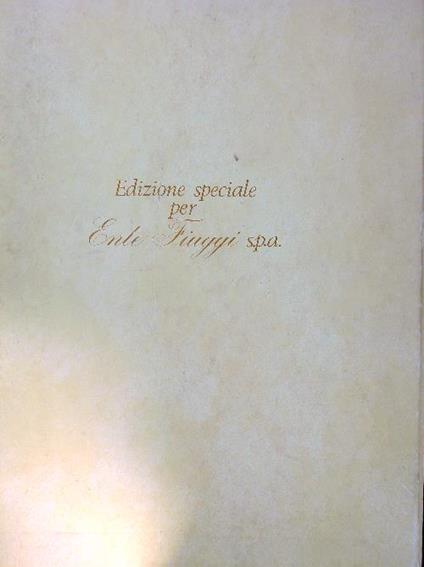 Edizione speciale
per
Ente Fiuggi s.p.a.